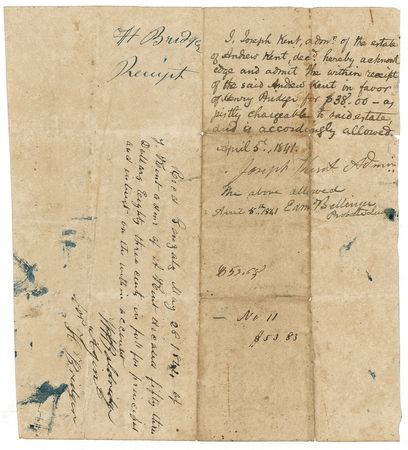 H Bridger
Receipt
I, Joseph Kent, admr. of the estate
of Andrew Kent, decd. hereby acknowl
edge and admit the within receipt
of the said Andrew Kent in favor
of Henry Bridger for $38.00 - as
justly chargeable to said estate,
and is accordingly allowed
April 5th, 1841.
Joseph Kent Admin
The above allowed
April 5th 1841 Edm Bellinger
Probate
$53.83
No 11
$53.83
Recd Gonzales May 28 1842 of
J Kent admr of A Kent deceased fifty three
Dollars Eighty three cents in full for principal
and interest on the within account
Agent
for H Bridger